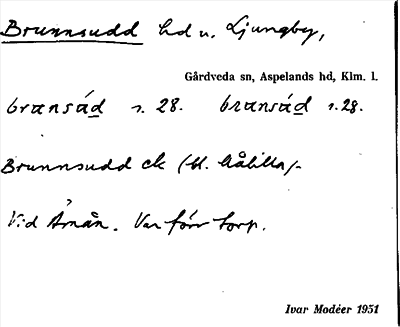 Brunnsudd hd u. Ljungby,
Gårdveda sn, Aspelands hd, Klm. l.
s. 28. s. 28.
Brunnsudd ek (bl. Målilla).
Vid Åmån. Var förr torp.
Ivar Modéer 1951